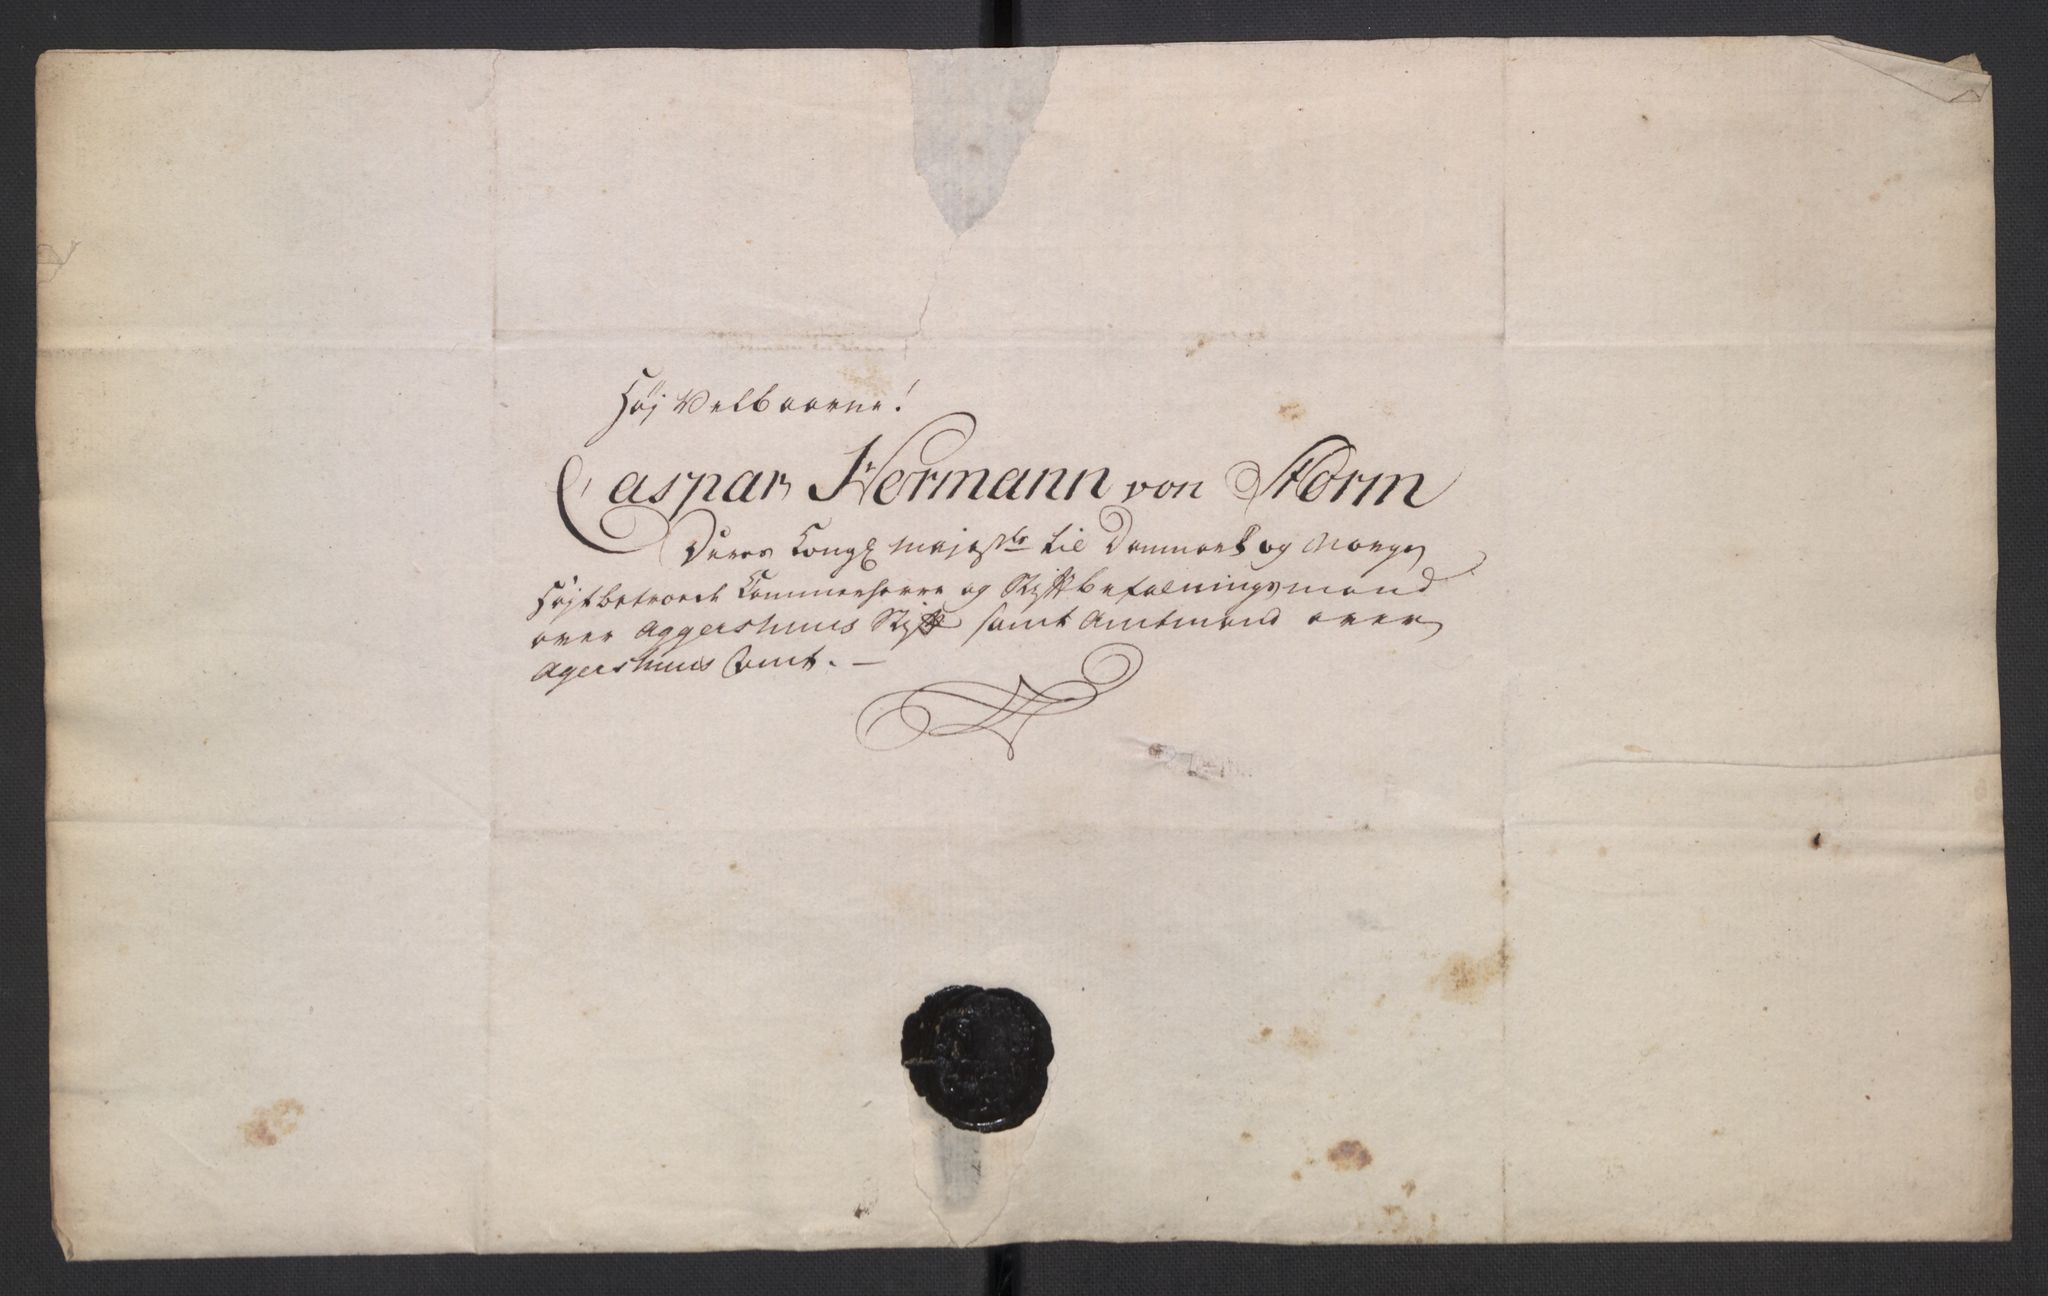 Høj Velbaarne!
Caspar Hermann von Storm
Deres Kongl Majestts til Danmark og Norges
Højtbetroede Kammerherre og Stiftbefalningsmand
over Aggershuus Stift samt Amtmand over
Agershuus Amt. —